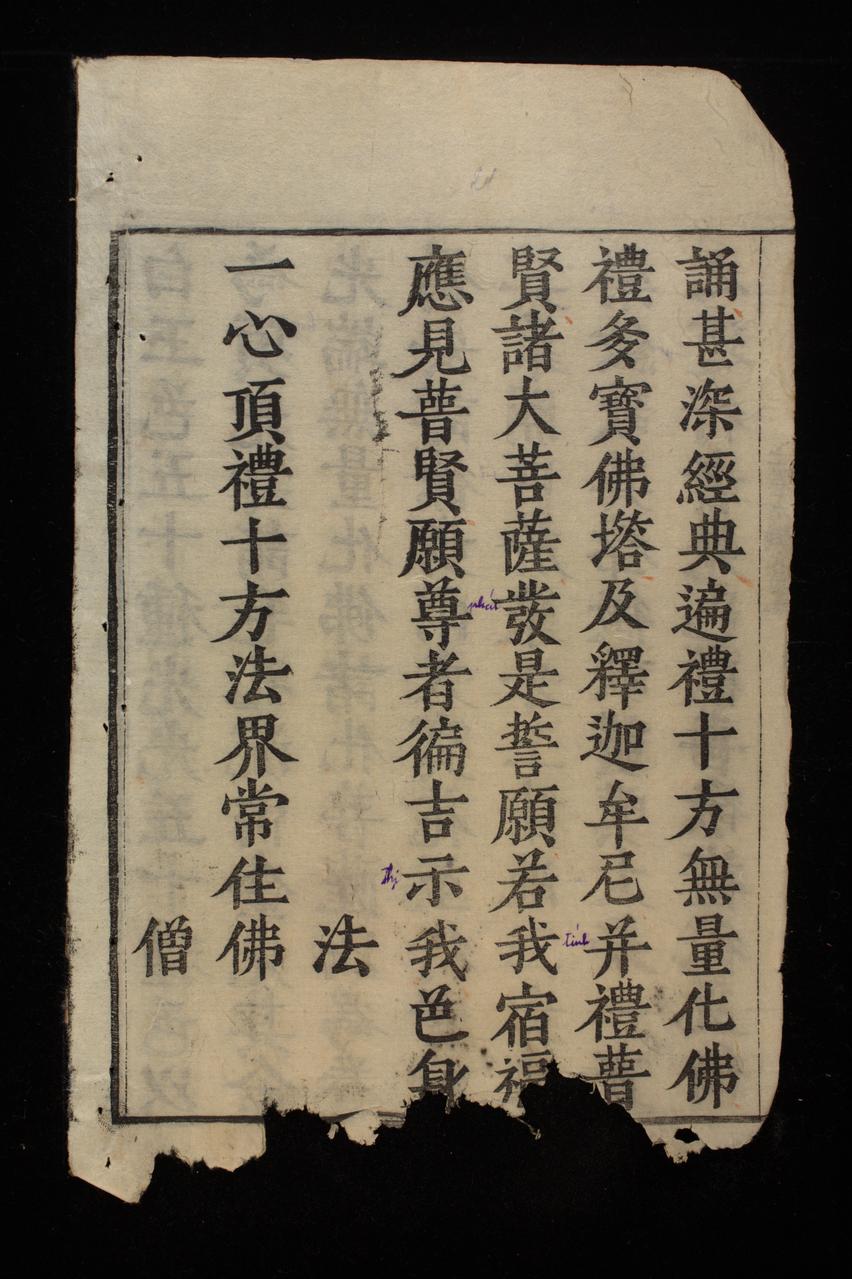 誦甚深經典遍禮十方無量化佛
禮多寶佛塔及釋迦牟尼并禮普
賢諸大菩薩發是誓願若我宿福
phát
tính
應見普賢願尊者徧吉示我色身
thị
法
一心頂禮十方法界常住佛
僧